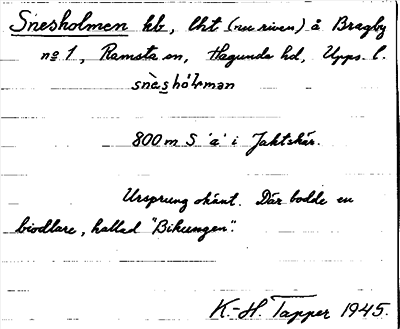 Snesholmen hb, lht (nu riven) å Bragby
no 1, Ramsta sn, Hagunda hd, Upps. l.
snèshòlman
800 m S 'a' i Jaktskär.
Ursprung okänt. Där bodde en
biodlare, kallad "Bikungen".
K.-H. Tapper 1945.